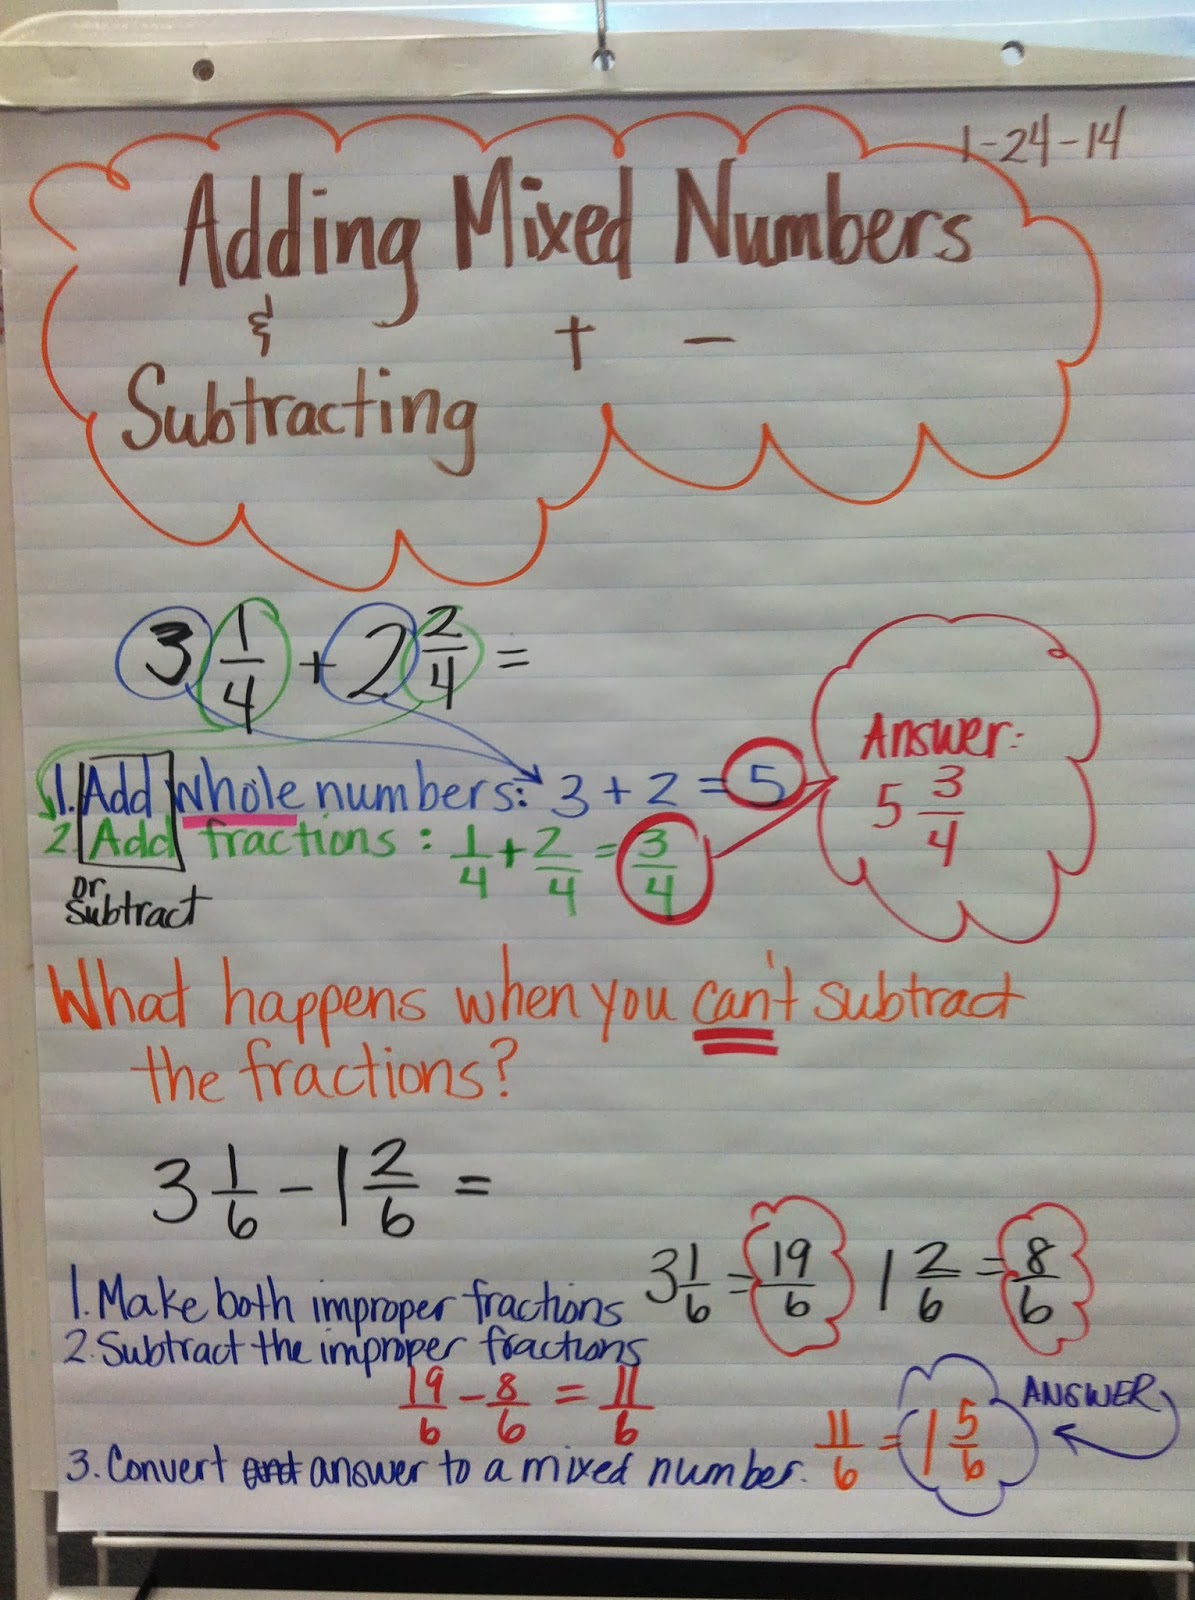 1-24-14
Adding Mixed Numbers
& + -
Subtracting
3 1/4 + 2 2/4 =
Answer:
5 3/4
1. Add whole numbers: 3 + 2 = 5
2. Add fractions: 1/4 + 2/4 = 3/4
or
subtract
What happens when you can't subtract
the fractions?
3 1/6 - 1 2/6 =
3 1/6 = 19/6 1 2/6 = 8/6
1. Make both improper fractions
2. Subtract the improper fractions
19/6 - 8/6 = 11/6
ANSWER
3. Convert answer to a mixed number. 11/6 = 1 5/6